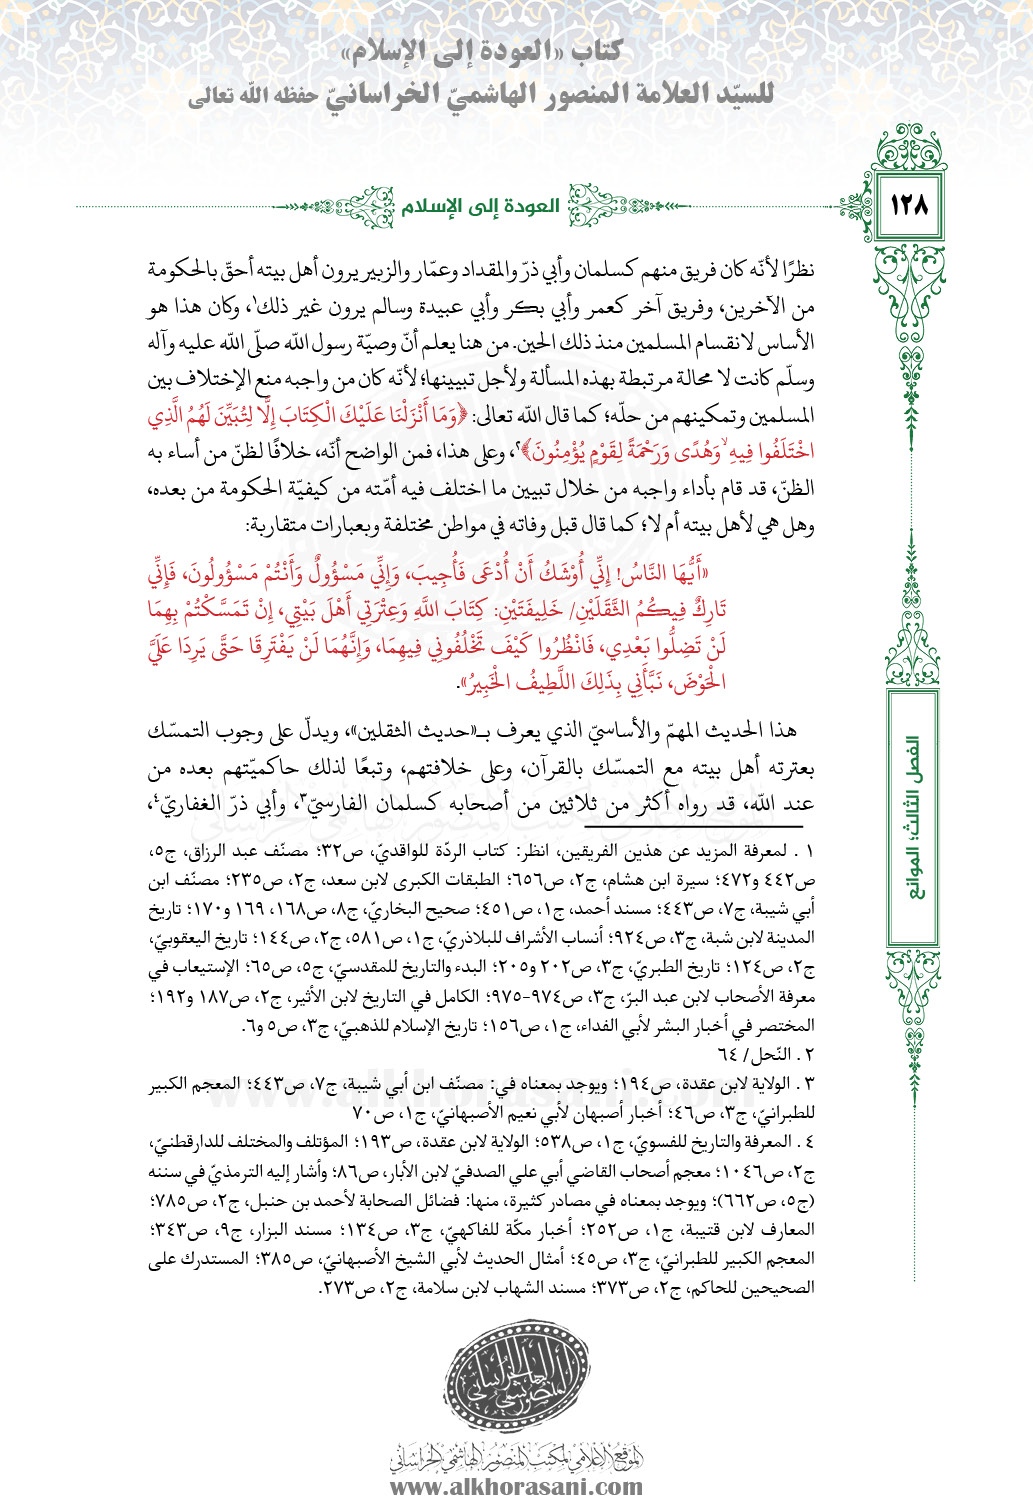 كتاب «العودة إلى الإسلام»
للسيّد العلامة المنصور الهاشميّ الخراسانيّ حفظه الله تعالى
١٢٨
العودة إلى الإسلام
نظرًا لأنّه كان فريق منهم كسلمان وأبي ذرّ والمقداد وعمّار والزبير يرون أهل بيته أحقّ بالحكومة
من الآخرين، وفريق آخر كعمر وأبي بكر وأبي عبيدة وسالم يرون غير ذلك١، وكان هذا هو
الأساس لانقسام المسلمين منذ ذلك الحين. من هنا يعلم أنّ وصيّة رسول الله صلّى الله عليه وآله
وسلّم كانت لا محالة مرتبطة بهذه المسألة ولأجل تبيينها؛ لأنّه كان من واجبه منع الإختلاف بين
المسلمين وتمكينهم من حلّه؛ كما قال الله تعالى: ﴿وَمَا أَنْزَلْنَا عَلَيْكَ الْكِتَابَ إِلَّا لِتُبَيِّنَ لَهُمُ الَّذِي
اخْتَلَفُوا فِيهِ ۙ وَهُدًى وَرَحْمَةً لِقَوْمٍ يُؤْمِنُونَ﴾٢، وعلى هذا، فمن الواضح أنّه، خلافًا لظنّ من أساء به
الظنّ، قد قام بأداء واجبه من خلال تبيين ما اختلف فيه أمّته من كيفيّة الحكومة من بعده،
وهل هي لأهل بيته أم لا؛ كما قال قبل وفاته في مواطن مختلفة وبعبارات متقاربة:
«أَيُّهَا النَّاسُ! إِنِّي أُوْشَكُ أَنْ أُدْعَى فَأُجِيبَ، وَإِنِّي مَسْؤُولٌ وَأَنْتُمْ مَسْؤُولُونَ، فَإِنِّي
تَارِكٌ فِيكُمُ الثَّقَلَيْنِ/ خَلِيفَتَيْنِ: كِتَابَ اللَّهِ وَعِتْرَتِي أَهْلَ بَيْتِي، إِنْ تَمَسَّكْتُمْ بِهِمَا
لَنْ تَضِلُّوا بَعْدِي، فَانْظُرُوا كَيْفَ تَخْلُفُونِي فِيهِمَا، وَإِنَّهُمَا لَنْ يَفْتَرِقَا حَتَّى يَرِدَا عَلَيَّ
الْحَوْضَ، نَبَّأَنِي بِذَلِكَ اللَّطِيفُ الْخَبِيرُ».
هذا الحديث المهمّ والأساسيّ الذي يعرف بـ«حديث الثقلين»، ويدلّ على وجوب التمسّك
بعترته أهل بيته مع التمسّك بالقرآن، وعلى خلافتهم، وتبعًا لذلك حاكميّتهم بعده من
عند الله، قد رواه أكثر من ثلاثين من أصحابه كسلمان الفارسيّ٣، وأبي ذرّ الغفاريّ٤،
١ . لمعرفة المزيد عن هذين الفريقين، انظر: كتاب الردّة للواقديّ، ص٣٢؛ مصنّف عبد الرزاق، ج٥،
ص٤٤٢ و٤٧٢؛ سيرة ابن هشام، ج٢، ص٦٥٦؛ الطبقات الكبرى لابن سعد، ج٢، ص٢٣٥؛ مصنّف ابن
أبي شيبة، ج٧، ص٤٤٣؛ مسند أحمد، ج١، ص٤٥١؛ صحيح البخاريّ، ج٨، ص١٦٨، ١٦٩ و١٧٠؛ تاريخ
المدينة لابن شبة، ج٣، ص٩٢٤؛ أنساب الأشراف للبلاذريّ، ج١، ص٥٨١، ج٢، ص١٤٤؛ تاريخ اليعقوبيّ،
ج٢، ص١٢٤؛ تاريخ الطبريّ، ج٣، ص٢٠٢ و٢٠٥؛ البدء والتاريخ للمقدسيّ، ج٥، ص٦٥؛ الإستيعاب في
معرفة الأصحاب لابن عبد البرّ، ج٣، ص٩٧٤-٩٧٥؛ الكامل في التاريخ لابن الأثير، ج٢، ص١٨٧ و١٩٢؛
المختصر في أخبار البشر لأبي الفداء، ج١، ص١٥٦؛ تاريخ الإسلام للذهبيّ، ج٣، ص٥ و٦.
٢ . النّحل/ ٦٤
٣ . الولاية لابن عقدة، ص١٩٤؛ ويوجد بمعناه في: مصنّف ابن أبي شيبة، ج٧، ص٤٤٣؛ المعجم الكبير
للطبرانيّ، ج٣، ص٤٦؛ أخبار أصبهان لأبي نعيم الأصبهانيّ، ج١، ص٧٠
٤ . المعرفة والتاريخ للفسويّ، ج١، ص٥٣٨؛ الولاية لابن عقدة، ص١٩٣؛ المؤتلف والمختلف للدارقطنيّ،
ج٢، ص١٠٤٦؛ معجم أصحاب القاضي أبي علي الصدفيّ لابن الأبار، ص٨٦؛ وأشار إليه الترمذيّ في سننه
(ج٥، ص٦٦٢)؛ ويوجد بمعناه في مصادر كثيرة، منها: فضائل الصحابة لأحمد بن حنبل، ج٢، ص٧٨٥؛
المعارف لابن قتيبة، ج١، ص٢٥٢؛ أخبار مكّة للفاكهيّ، ج٣، ص١٣٤؛ مسند البزار، ج٩، ص٣٤٣؛
المعجم الكبير للطبرانيّ، ج٣، ص٤٥؛ أمثال الحديث لأبي الشيخ الأصبهانيّ، ص٣٨٥؛ المستدرك على
الصحيحين للحاكم، ج٢، ص٣٧٣؛ مسند الشهاب لابن سلامة، ج٢، ص٢٧٣.
الفصل الثالث؛ الموانع
المنصور الهاشمي الخراساني
الموقع الإعلامي لمكتب المنصور الهاشمي الخراساني
www.alkhorasani.com